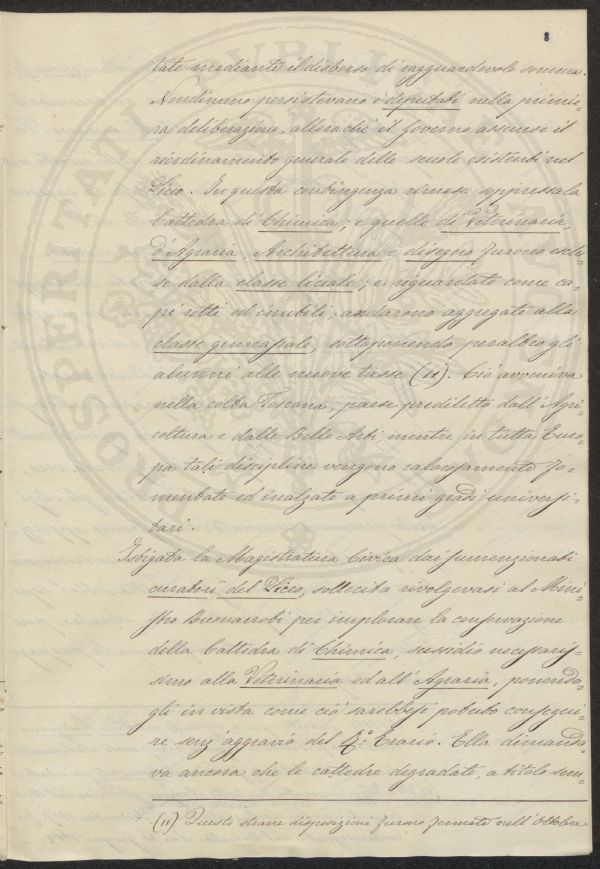 8
tate mediante il disborso di ragguardevole somma.
Nondimeno persistevano i deputati nella primie-
ra deliberazione, allorchè il Governo assunse il
riordinamento generale delle scuole esistenti nel
Liceo. In questa contingenza rimase soppressa la
Cattedra di Chimica; e quelle di Veterinaria,
d'Agraria, Architettura e disegno furono esclu-
se dalla classe liceale; e riguardate come ca-
pi rotti ed inutili, andarono aggregate alla
classe ginnasiale, sottoponendo peraltro gli
alunni alle nuove tasse (11). Ciò avveniva
nella colta Toscana, paese prediletto dall'Agri-
coltura e dalle Belle Arti, mentre in tutta Euro-
pa tali discipline vengono calorosamente fo-
mentate ed inalzate a primi gradi universi-
tari.
Istigata la Magistratura Civica dai summenzionati
curatori del Liceo, sollecita rivolgevasi al Mini-
stro Buonarroti per implorare la conservazione
della Cattedra di Chimica, sussidio necessaris-
simo alla Veterinaria ed all'Agraria, ponendo-
gli in vista come ciò sarebbesi potuto consegui-
re senz'aggravio del R.° Erario. Ella dimanda-
va ancora che le cattedre degradate, a titolo sem-
(11) Queste strane disposizioni furono fermate nell'Ottobre
PROSPERITATI PUBLICAE